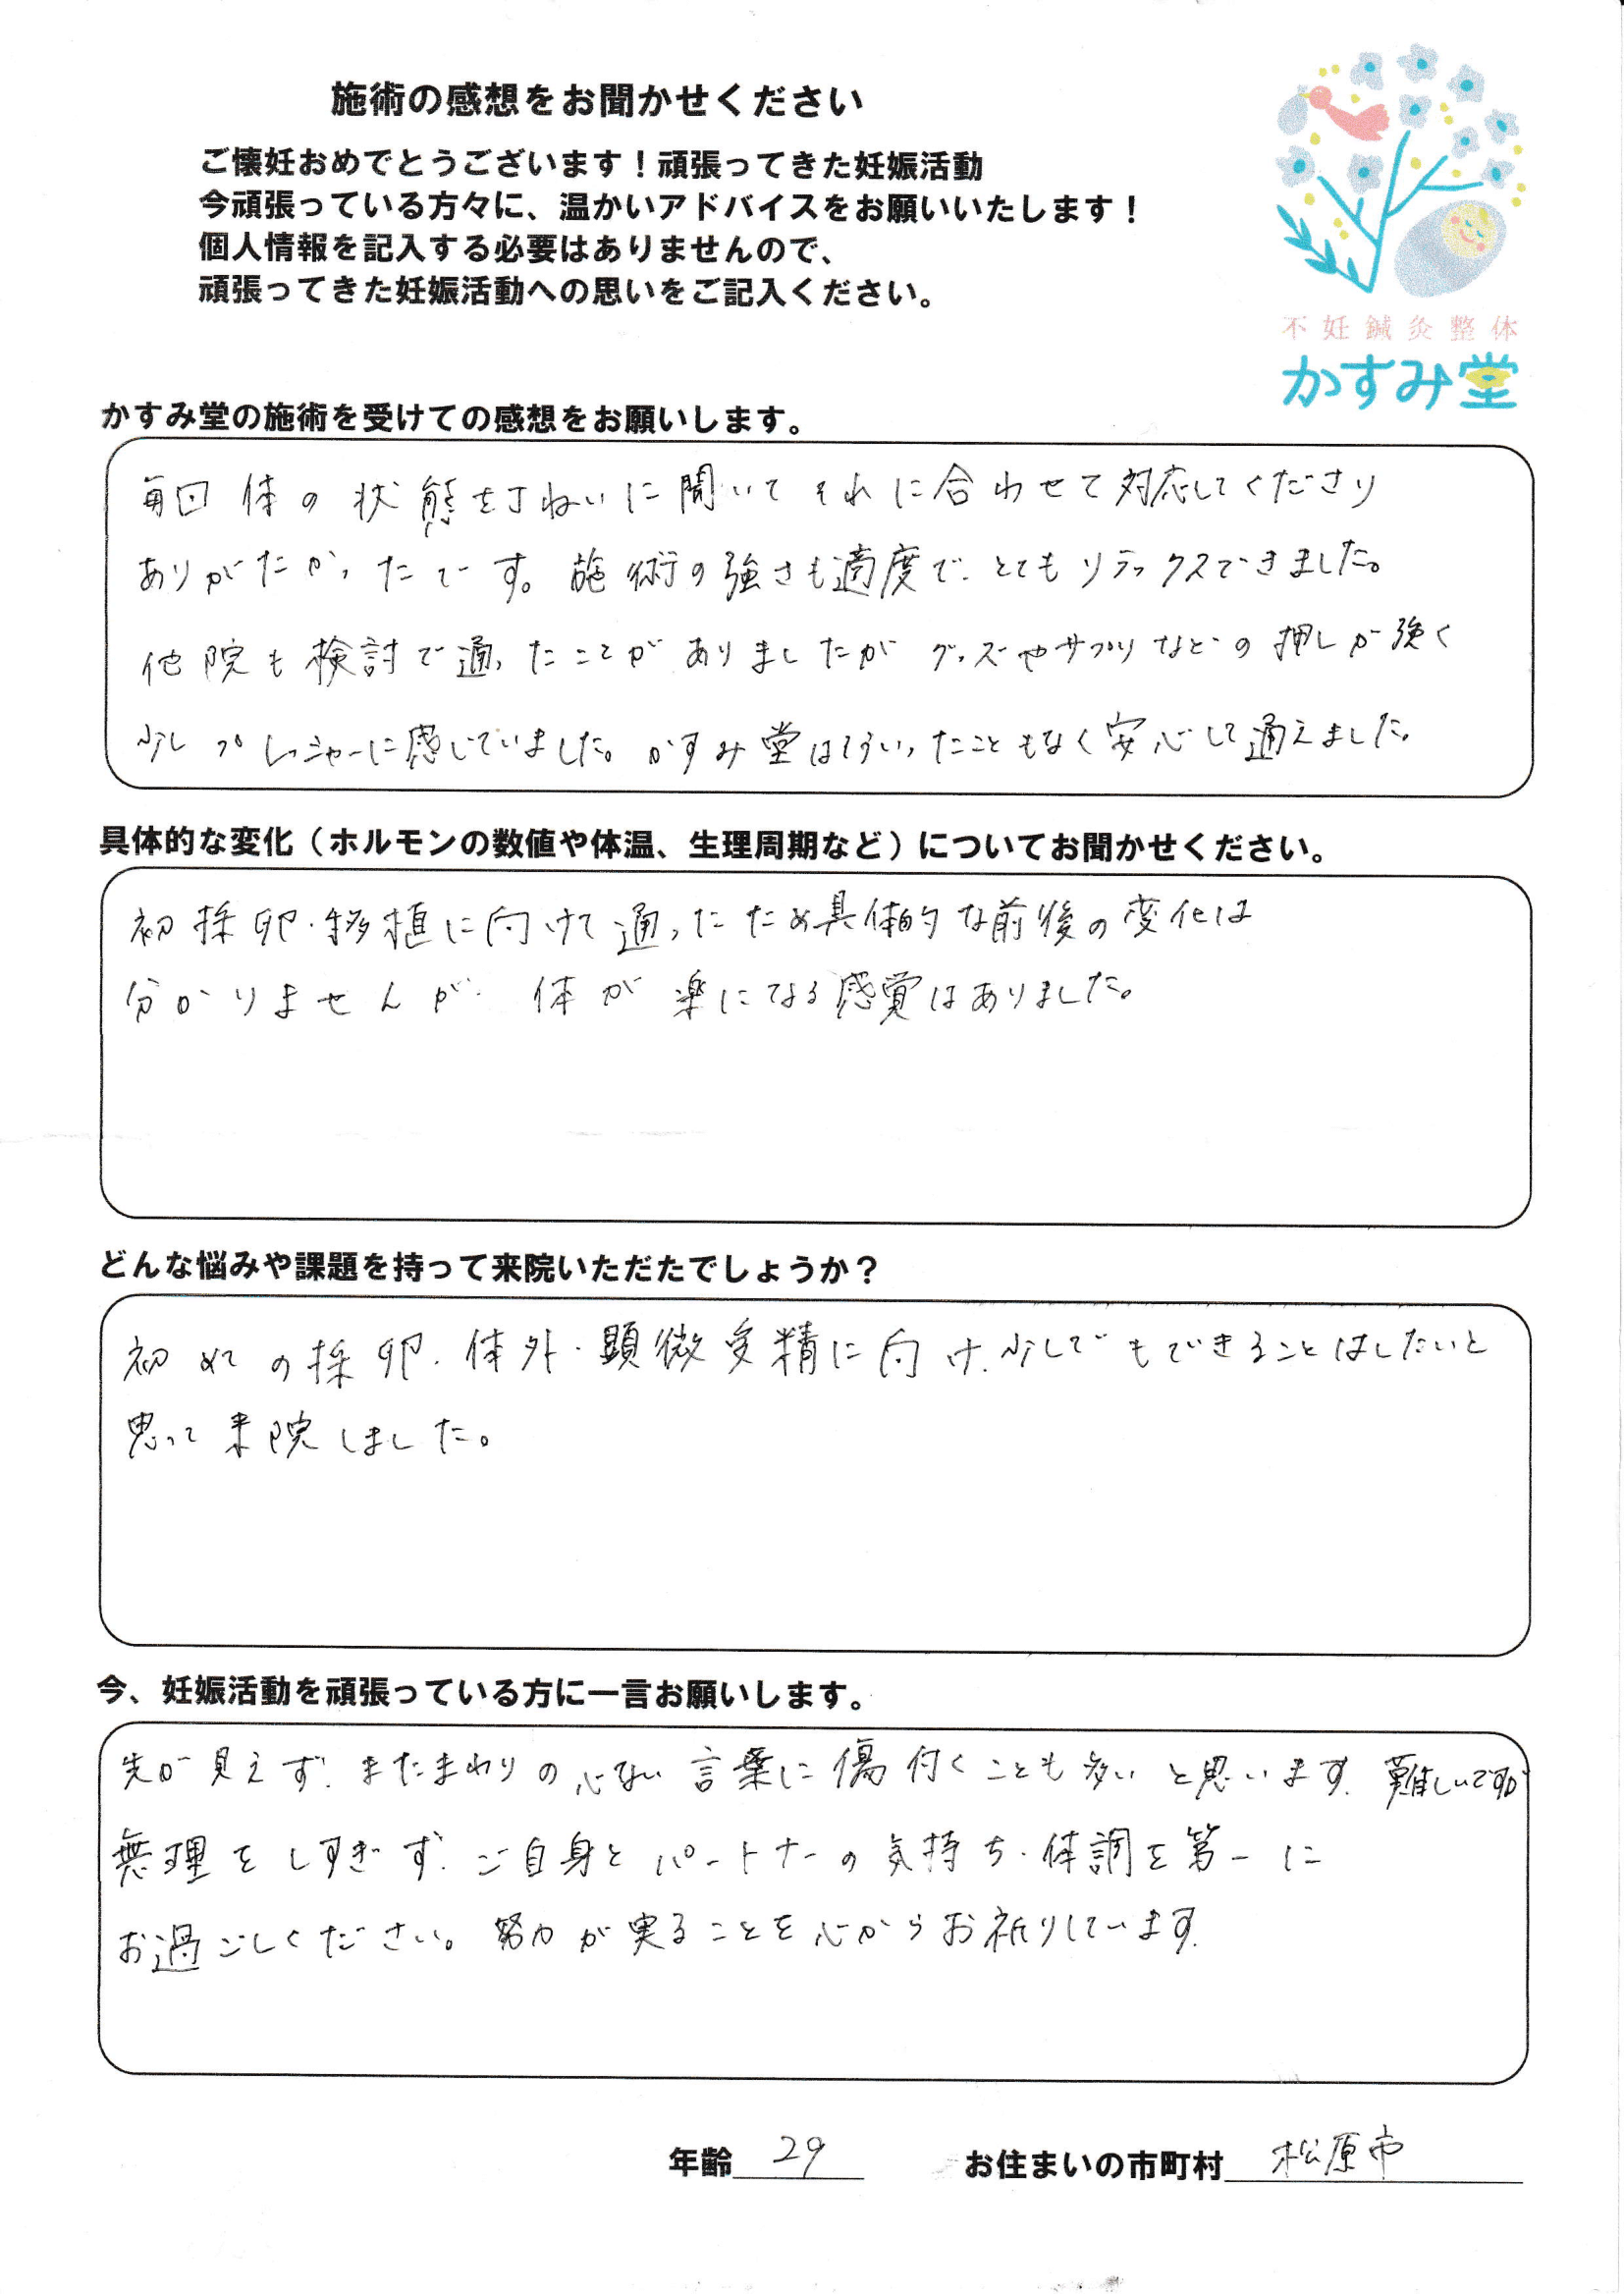 施術の感想をお聞かせください
ご懐妊おめでとうございます！頑張ってきた妊娠活動
今頑張っている方々に、温かいアドバイスをお願いいたします！
個人情報を記入する必要はありませんので、
頑張ってきた妊娠活動への思いをご記入ください。
不妊鍼灸整体
かすみ堂
かすみ堂の施術を受けての感想をお願いします。
毎回体の状態を丁ねいに聞いてそれに合わせて対応してくださり
ありがたかったです。施術の強さも適度で、とてもリラックスできました。
他院も検討で通ったことがありましたがグッズやサプリなどの押しが強く
少しプレッシャーに感じていました。かすみ堂はそういったこともなく安心して通えました。
具体的な変化（ホルモンの数値や体温、生理周期など）についてお聞かせください。
初採卵・移植に向けて通ったため具体的な前後の変化は
分かりませんが、体が楽になる感覚はありました。
どんな悩みや課題を持って来院いただたでしょうか？
初めての採卵・体外・顕微受精に向け、少しでもできることはしたいと
思って来院しました。
今、妊娠活動を頑張っている方に一言お願いします。
先が見えず、またまわりの心ない言葉に傷付くことも多いと思います。難しいですが
無理をしすぎず、ご自身とパートナーの気持ち・体調を第一に
お過ごしください。努力が実ることを心からお祈りしています。
年齢 29 お住まいの市町村 松原市